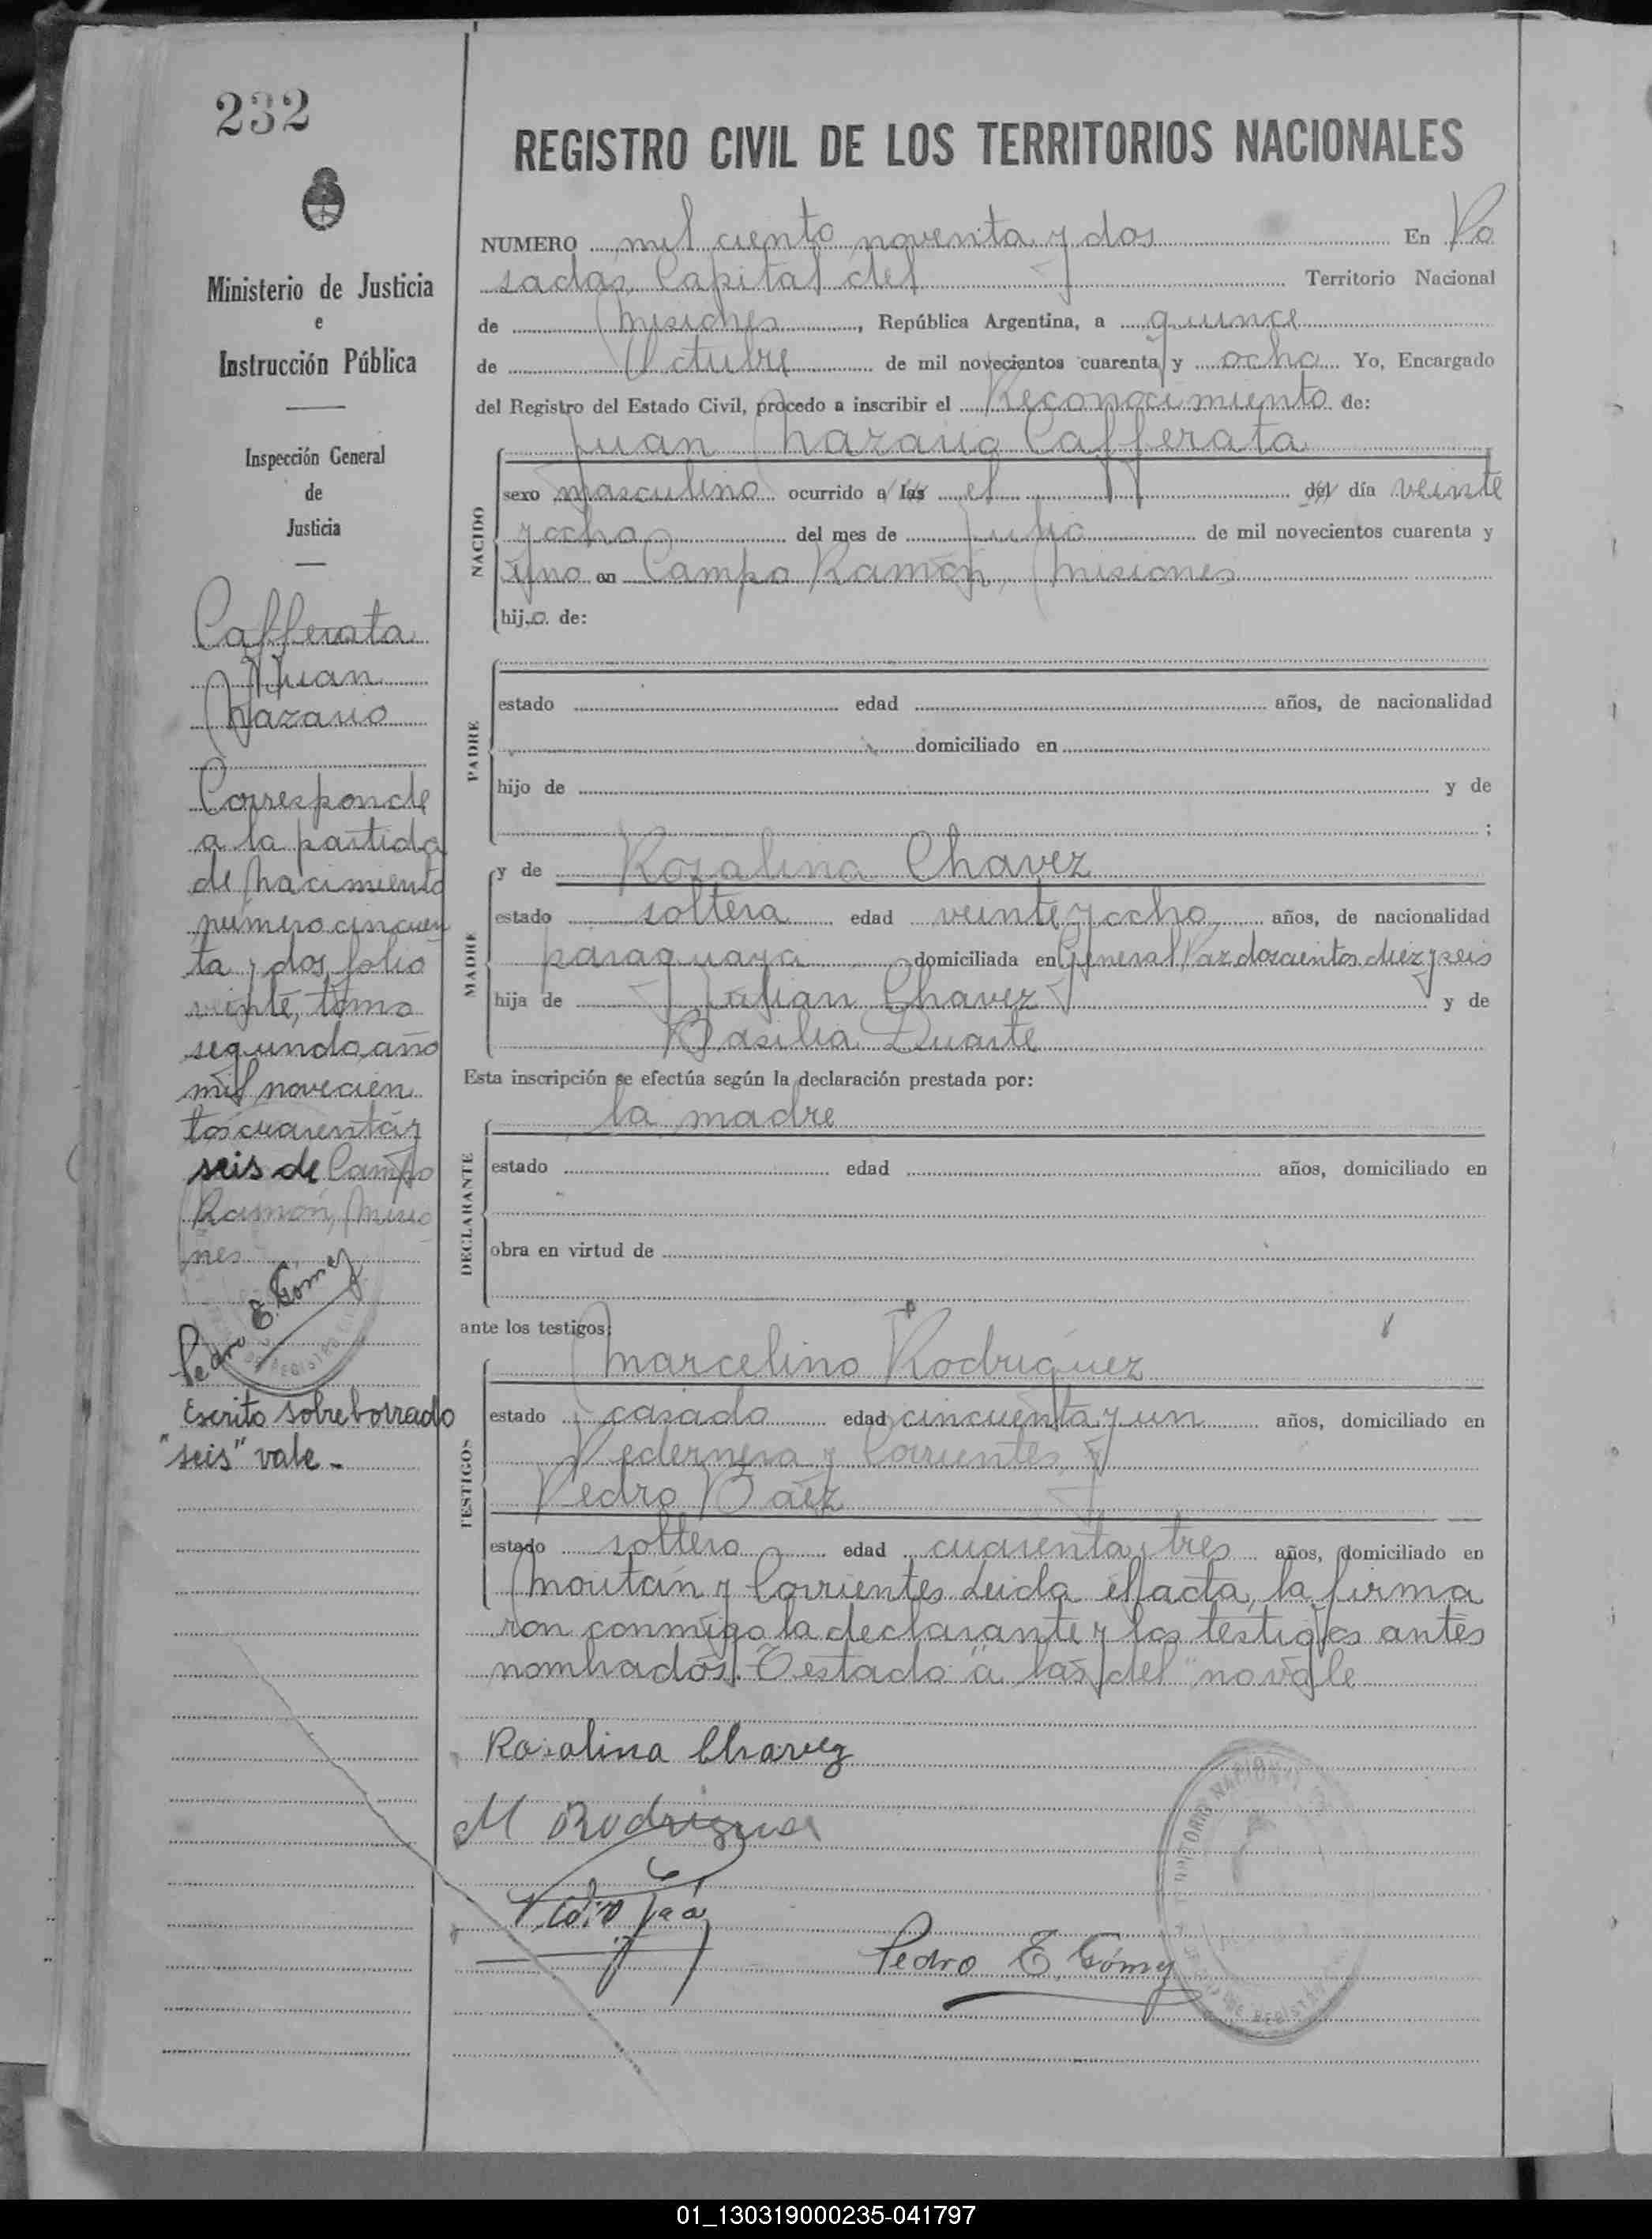 232
Ministerio de Justicia
e
Instrucción Pública
Inspección General
de
Justicia
Cafferata
Juan
Nazario
Corresponde
a la partida
de nacimiento
número cincuen
ta y dos, folio
veinte, tomo
segundo, año
mil novecien
tos cuarenta y
seis de Campo
Ramón, Misio
nes
Pedro E. Gómez
Escrito sobre borrado
"seis" vale -
REGISTRO CIVIL DE LOS TERRITORIOS NACIONALES
NUMERO mil ciento noventa y dos En Po
sadas, Capital del Territorio Nacional
de Misiones, República Argentina, a quince
de Octubre de mil novecientos cuarenta y ocho Yo, Encargado
del Registro del Estado Civil, procedo a inscribir el Reconocimiento de:
Juan Nazario Cafferata
NACIDO
sexo masculino ocurrido a las el del día veinte
y ocho del mes de Julio de mil novecientos cuarenta y
uno en Campo Ramón, Misiones
hijo de:
PADRE
estado edad años, de nacionalidad
domiciliado en
hijo de y de
;
MADRE
y de Rosalina Chavez
estado soltera edad veinte y ocho años, de nacionalidad
paraguaya domiciliada en General Paz doscientos diez y seis
hija de Julian Chavez y de
Basilia Duarte
Esta inscripción se efectúa según la declaración prestada por:
la madre
DECLARANTE
estado edad años, domiciliado en
obra en virtud de
ante los testigos:
Marcelino Rodriguez
TESTIGOS
estado casado edad cincuenta y un años, domiciliado en
Pedernera y Corrientes y
Pedro Báez
estado soltero edad cuarenta y tres años, domiciliado en
y Corrientes. Leida el acta, la firma
ron conmigo la declarante y los testigos antes
nombrados. Testado "a las del" no vale
Rosalina Chavez
M Rodriguez
Pedro E. Gómez
TERRITORIO NACIONAL
DE REGISTRO
01_130319000235-041797